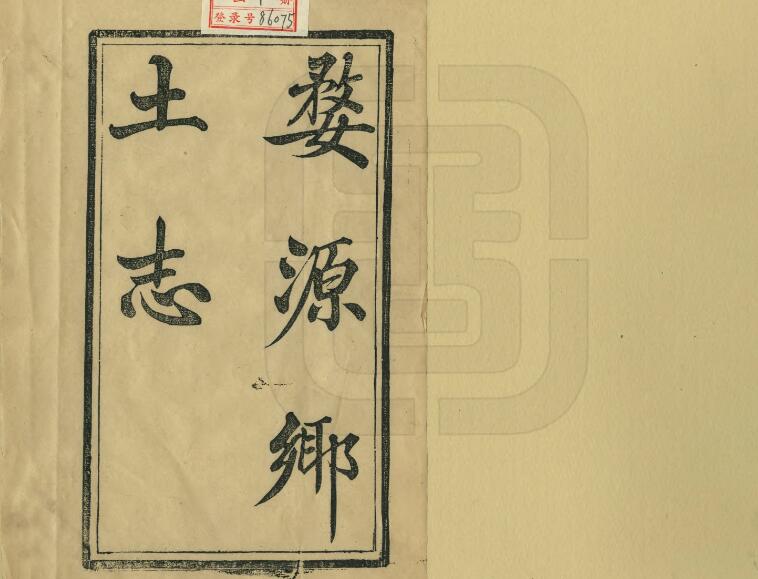 登录号86075
婺源鄉
土志